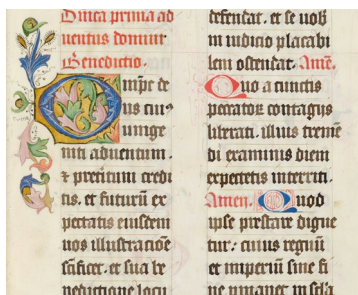 Dnica prima ad
uentus domini
Benedictio.
Omnips de
us cuiꝰ
unige
niti aduentum.
⁊ preritum credi
tis. et futurū ex
pectatis eiusdem
uos illustracōe
sāficet. et sua be
nedictione locu
defendat. et se uob
in iudicio placabi
lem ostendat. Amē.
Quo a cunctis
peccatoꝝ contagiis
liberati. illius tremē
di examinis diem
expectetis interriti.
Amen. Quod
ipse prestare digne
tur: cuius regnū
et imperiū sine fi
ne permanet in secla